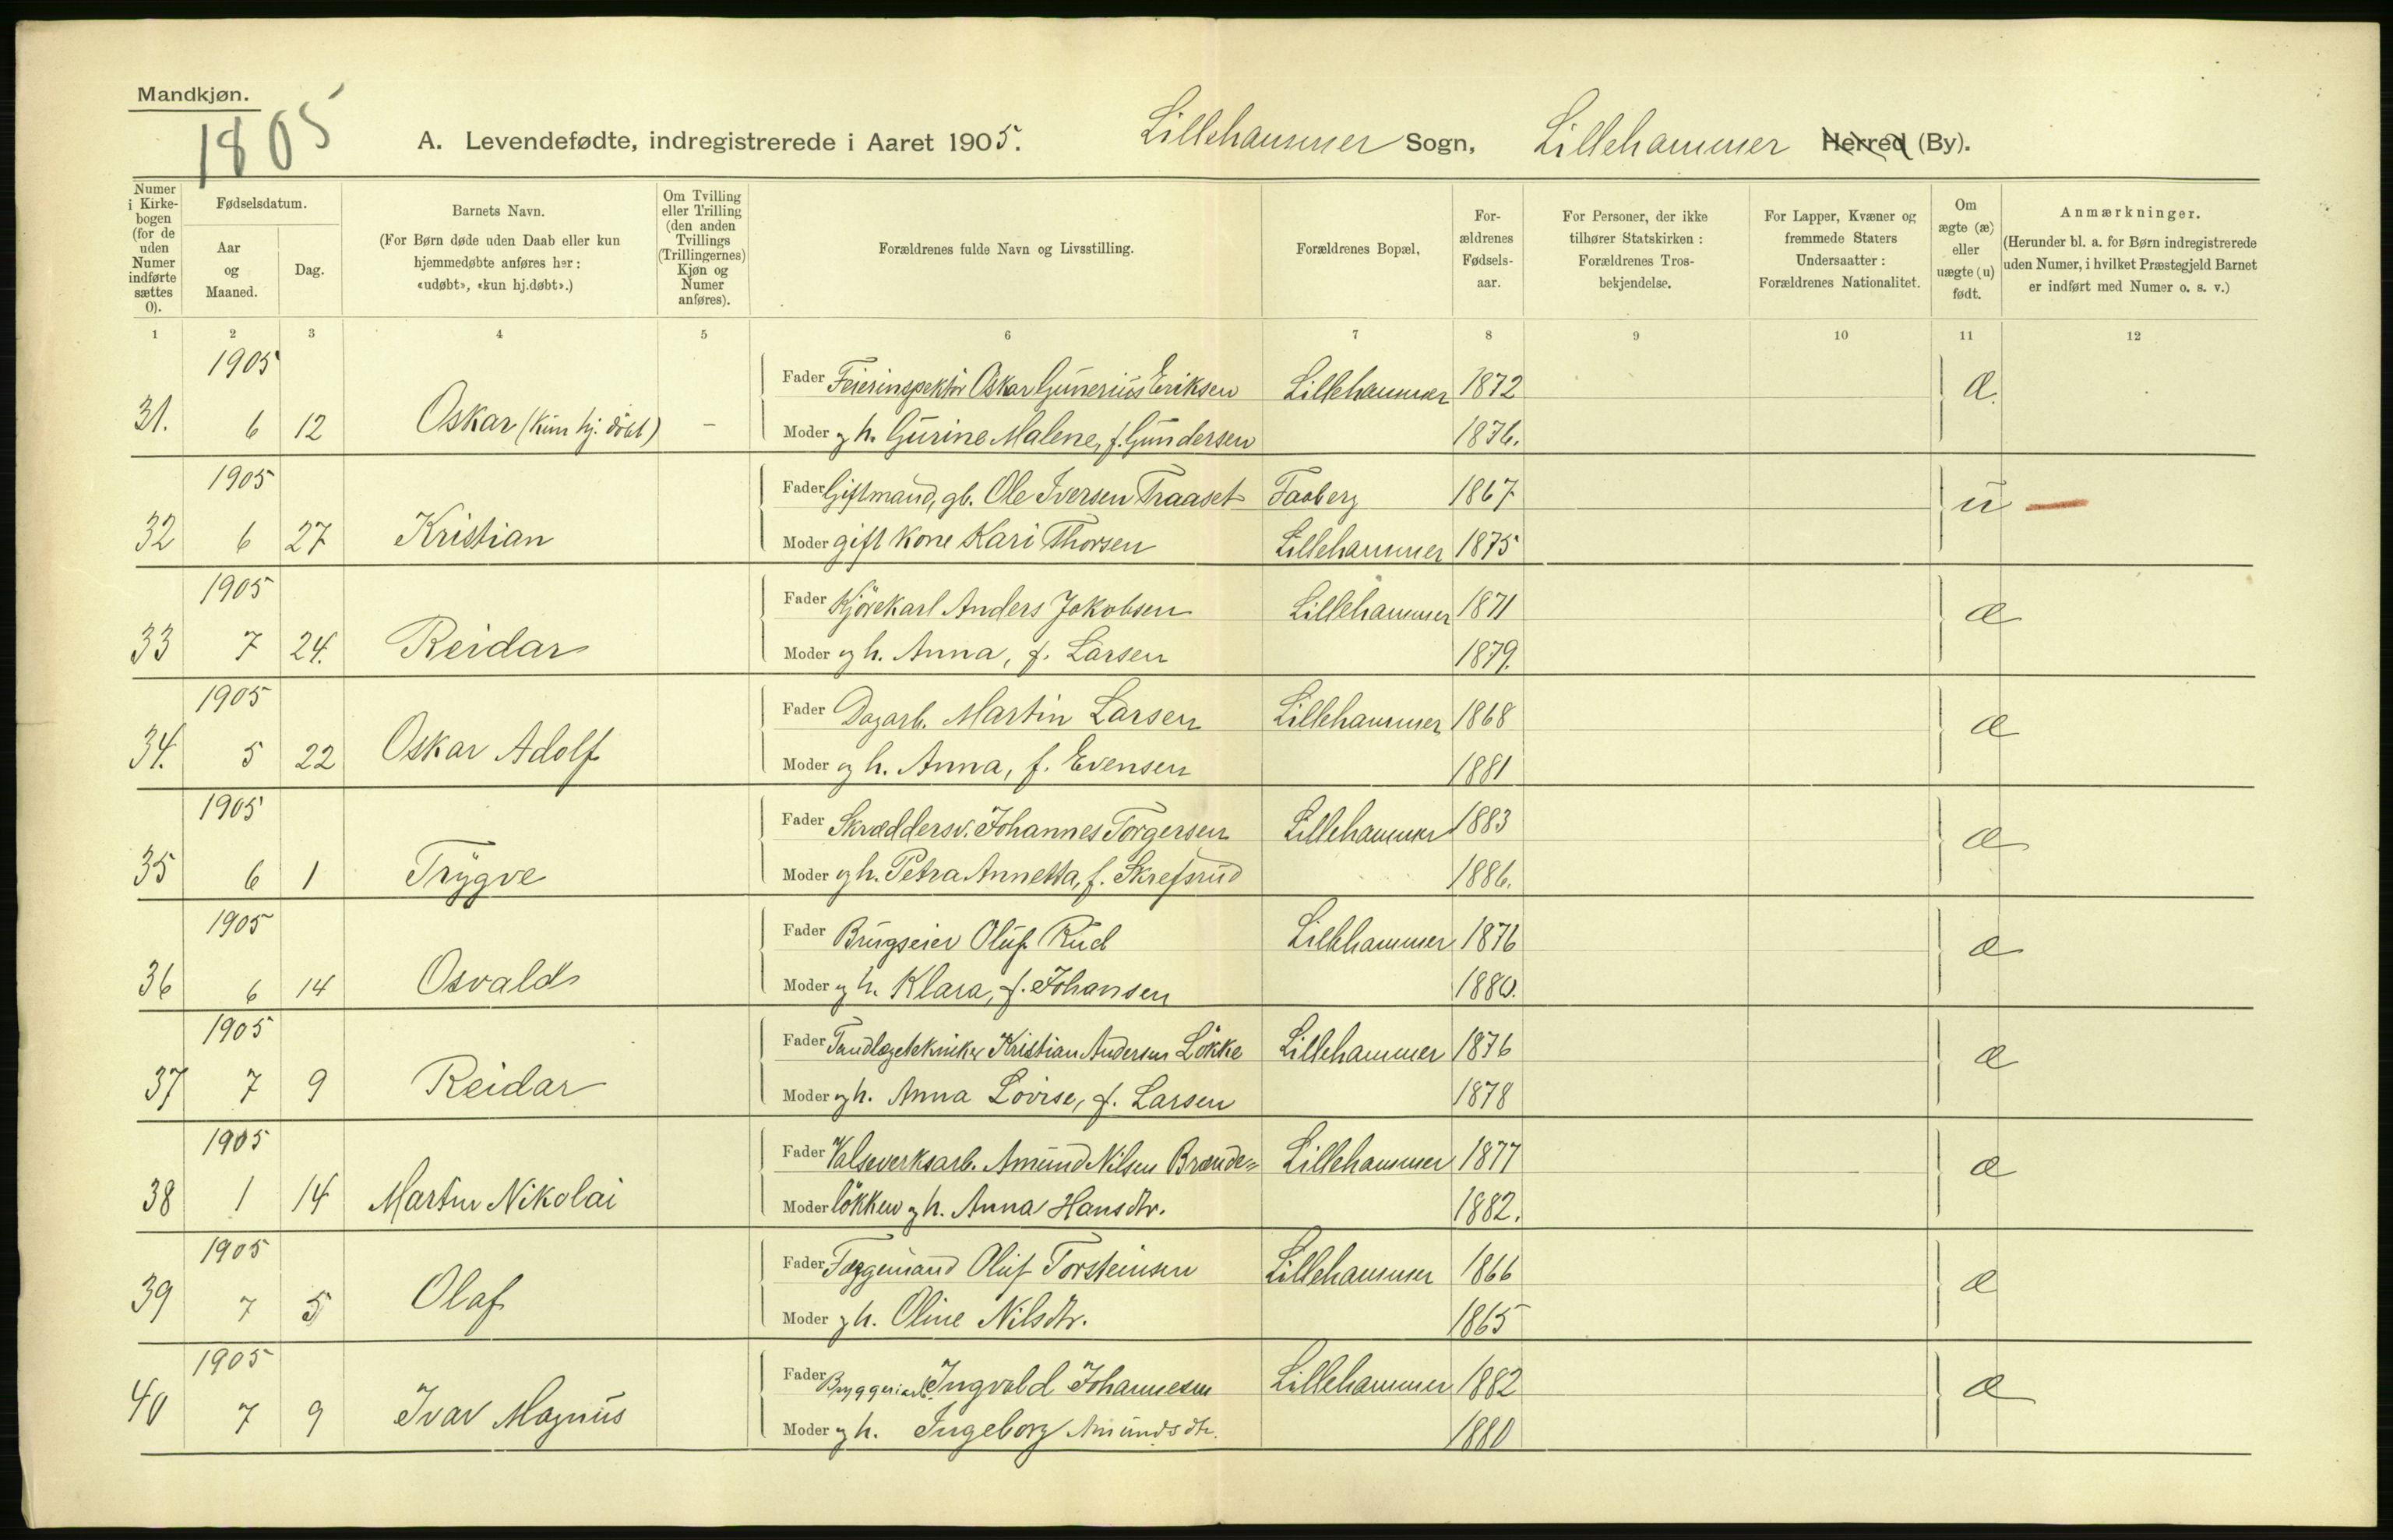 Mandkjøn.
1805
A. Levendefødte, indregistrerede i Aaret 1905. Lillehammer Sogn, Lillehammer Herred (By).
Numer i Kirkebogen (for de uden Numer indførte sættes 0).
Fødselsdatum.
Aar og Maaned.
Dag.
Barnets Navn.
(For Børn døde uden Daab eller kun hjemmedøbte anføres her: «udøbt», «kun hj.døbt».)
Om Tvilling eller Trilling (den anden Tvillings (Trillingernes) Kjøn og Numer anføres).
Forældrenes fulde Navn og Livsstilling.
Forældrenes Bopæl,
Forældrenes Fødselsaar.
For Personer, der ikke tilhører Statskirken: Forældrenes Trosbekjendelse.
For Lapper, Kvæner og fremmede Staters Undersaatter: Forældrenes Nationalitet.
Om ægte (æ) eller uægte (u) født.
Anmærkninger.
(Herunder bl. a. for Børn indregistrerede uden Numer, i hvilket Præstegjeld Barnet er indført med Numer o. s. v.)
1 2 3 4 5 6 7 8 9 10 11 12
1905
Fader Feierinspektör Oskar Gunerius Eriksen Lillehammer 1872 æ.
31. 6 12 Oskar (kun hj. döbt) -
Moder og h. Gurine Malene, f. Gundersen 1876.
1905
Fader Giftmand, gb. Ole Iversen Traaset Faaberg 1867 u —
32 6 27 Kristian
Moder gift Kone Kari Thorsen Lillehammer 1875
1905
Fader Kjörekarl Anders Jakobsen Lillehammer 1871 æ
33 7 24. Reidar
Moder og h. Anna, f. Larsen 1879.
1905
Fader Dagarb. Martin Larsen Lillehammer 1868 æ
34. 5 22 Oskar Adolf
Moder og h. Anna, f. Evensen 1881
1905
Fader Skræddersv. Johannes Torgersen Lillehammer 1883 æ
35 6 1 Trygve
Moder og h. Petra Annetta, f. Skrefsrud 1886.
1905
Fader Brugseier Oluf Rud Lillehammer 1876 æ
36 6 14 Osvald
Moder og h. Klara, f. Johansen 1880.
1905
Fader Tandlægetekniker Kristian Andersen Lökke Lillehammer 1876 æ
37 7 9 Reidar
Moder og h. Anna Lovise, f. Larsen 1878
1905
Fader Valseverksarb. Amund Nilsen Brænde= Lillehammer 1877 æ
38 1 14 Martin Nikolai
Moder lökken og h. Anna Hansdtr. 1882.
1905
Fader Oluf Torsteinsen Lillehammer 1866 æ
39 7 5 Olaf
Moder og h. Oline Nilsdtr. 1865
1905
Fader Bryggeriarb. Ingvald Johannesen Lillehammer 1882 æ
40 7 9 Ivar Magnus
Moder og h. Ingeborg Amundsdtr. 1880